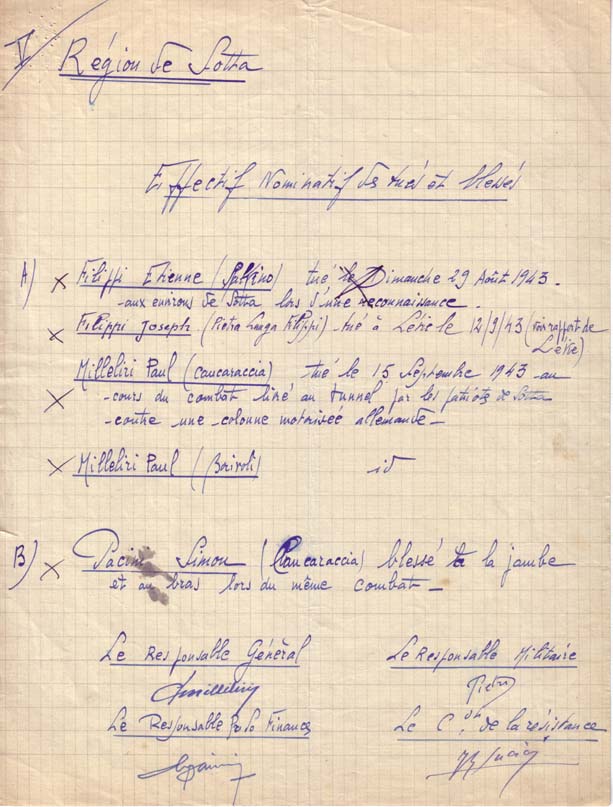 V
Région de Sotta
Effectif Nominatif de tués et blessés
A) x Filippi Etienne (Salfino) tué le Dimanche 29 Août 1943.
-aux environs de Sotta lors d'une reconnaissance.
x Filippi Joseph (Pietra Longa Filippi) -tué à Levie le 12/9/43 (voir rapport de
Levie)
Milleliri Paul (Caucaraccia) tué le 15 Septembre 1943 -au
x -cours du combat livré au tunnel par les patriotes de Sotta
-contre une colonne motorisée allemande-
x Milleliri Paul (Borivoli) id
B) x Pacini Simon (Caucaraccia) blessé à la jambe
et au bras lors du même combat-
Le Responsable Général Le Responsable Militaire
Milleliri Pietri
Le Responsable Finances Le C. de la résistance